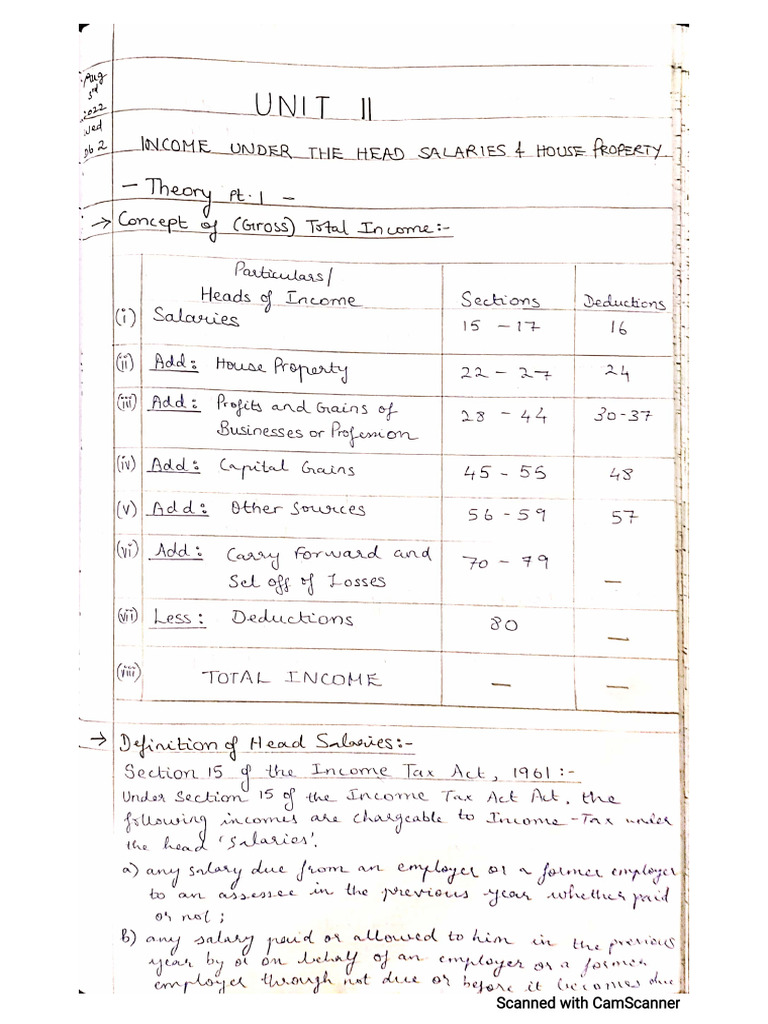 Aug
3rd
2022
Wed
Db 2
UNIT II
INCOME UNDER THE HEAD SALARIES & HOUSE PROPERTY
- Theory pt. 1 -
→ Concept of (Gross) Total Income:-
Particulars/
Heads of Income Sections Deductions
(i) Salaries 15 - 17 16
(ii) Add: House Property 22 - 27 24
(iii) Add: Profits and Gains of
Businesses or Profession 28 - 44 30-37
(iv) Add: Capital Grains 45 - 55 48
(v) Add: Other Sources 56 - 59 57
(vi) Add: Carry Forward and
Set off of Losses 70 - 79 —
(vii) Less: Deductions 80 —
(viii) TOTAL INCOME — —
→ Definition of Head Salaries:-
Section 15 of the Income Tax Act, 1961:-
Under Section 15 of the Income Tax Act Act, the
following incomes are chargeable to Income-Tax under
the head 'Salaries'.
a) any salary due from an employer or a former employer
to an assessee in the previous year whether paid
or not;
b) any salary paid or allowed to him in the previous
year by or on behalf of an employer or a former
employer through not due or before it becomes due
Scanned with CamScanner